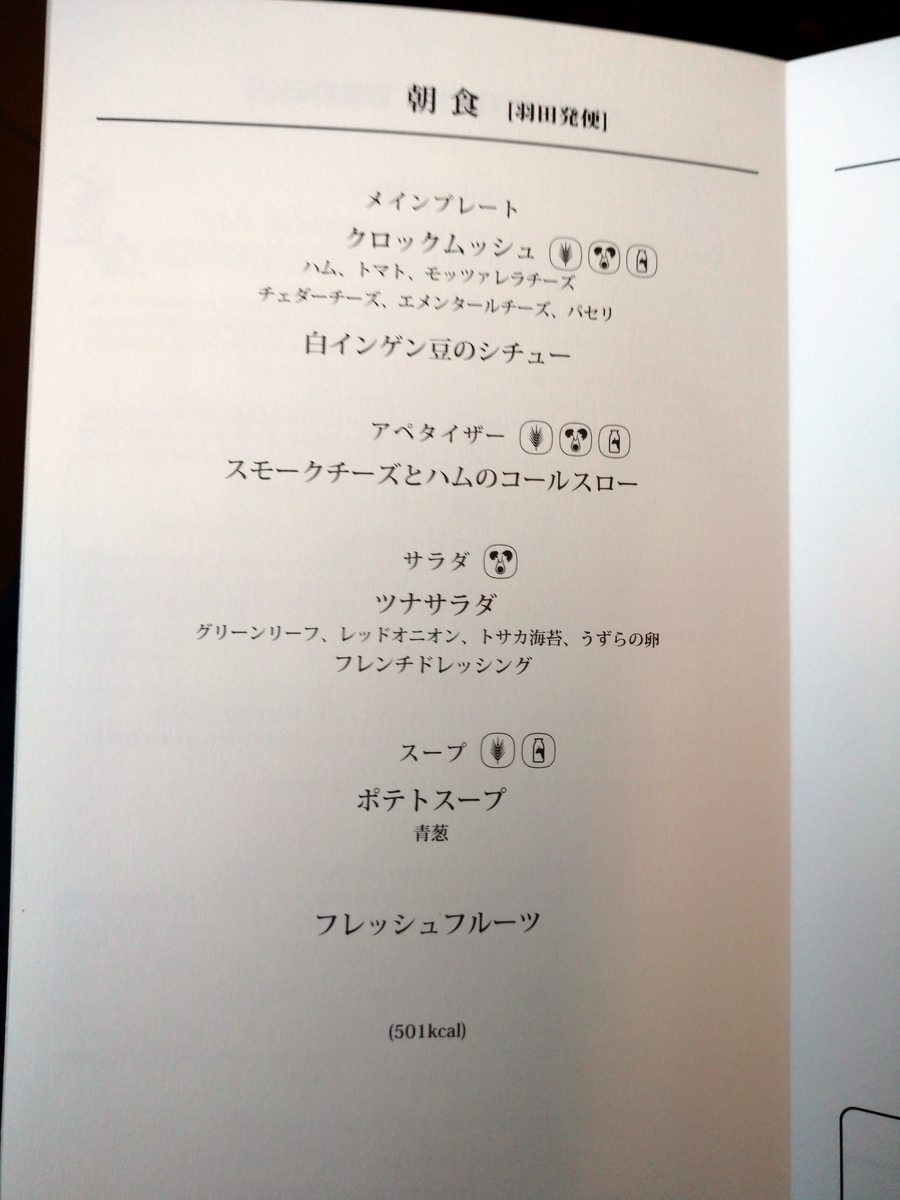 朝食 [羽田発便]
メインプレート
クロックムッシュ
ハム、トマト、モッツァレラチーズ
チェダーチーズ、エメンタールチーズ、パセリ
白インゲン豆のシチュー
アペタイザー
スモークチーズとハムのコールスロー
サラダ
ツナサラダ
グリーンリーフ、レッドオニオン、トサカ海苔、うずらの卵
フレンチドレッシング
スープ
ポテトスープ
青葱
フレッシュフルーツ
(501kcal)